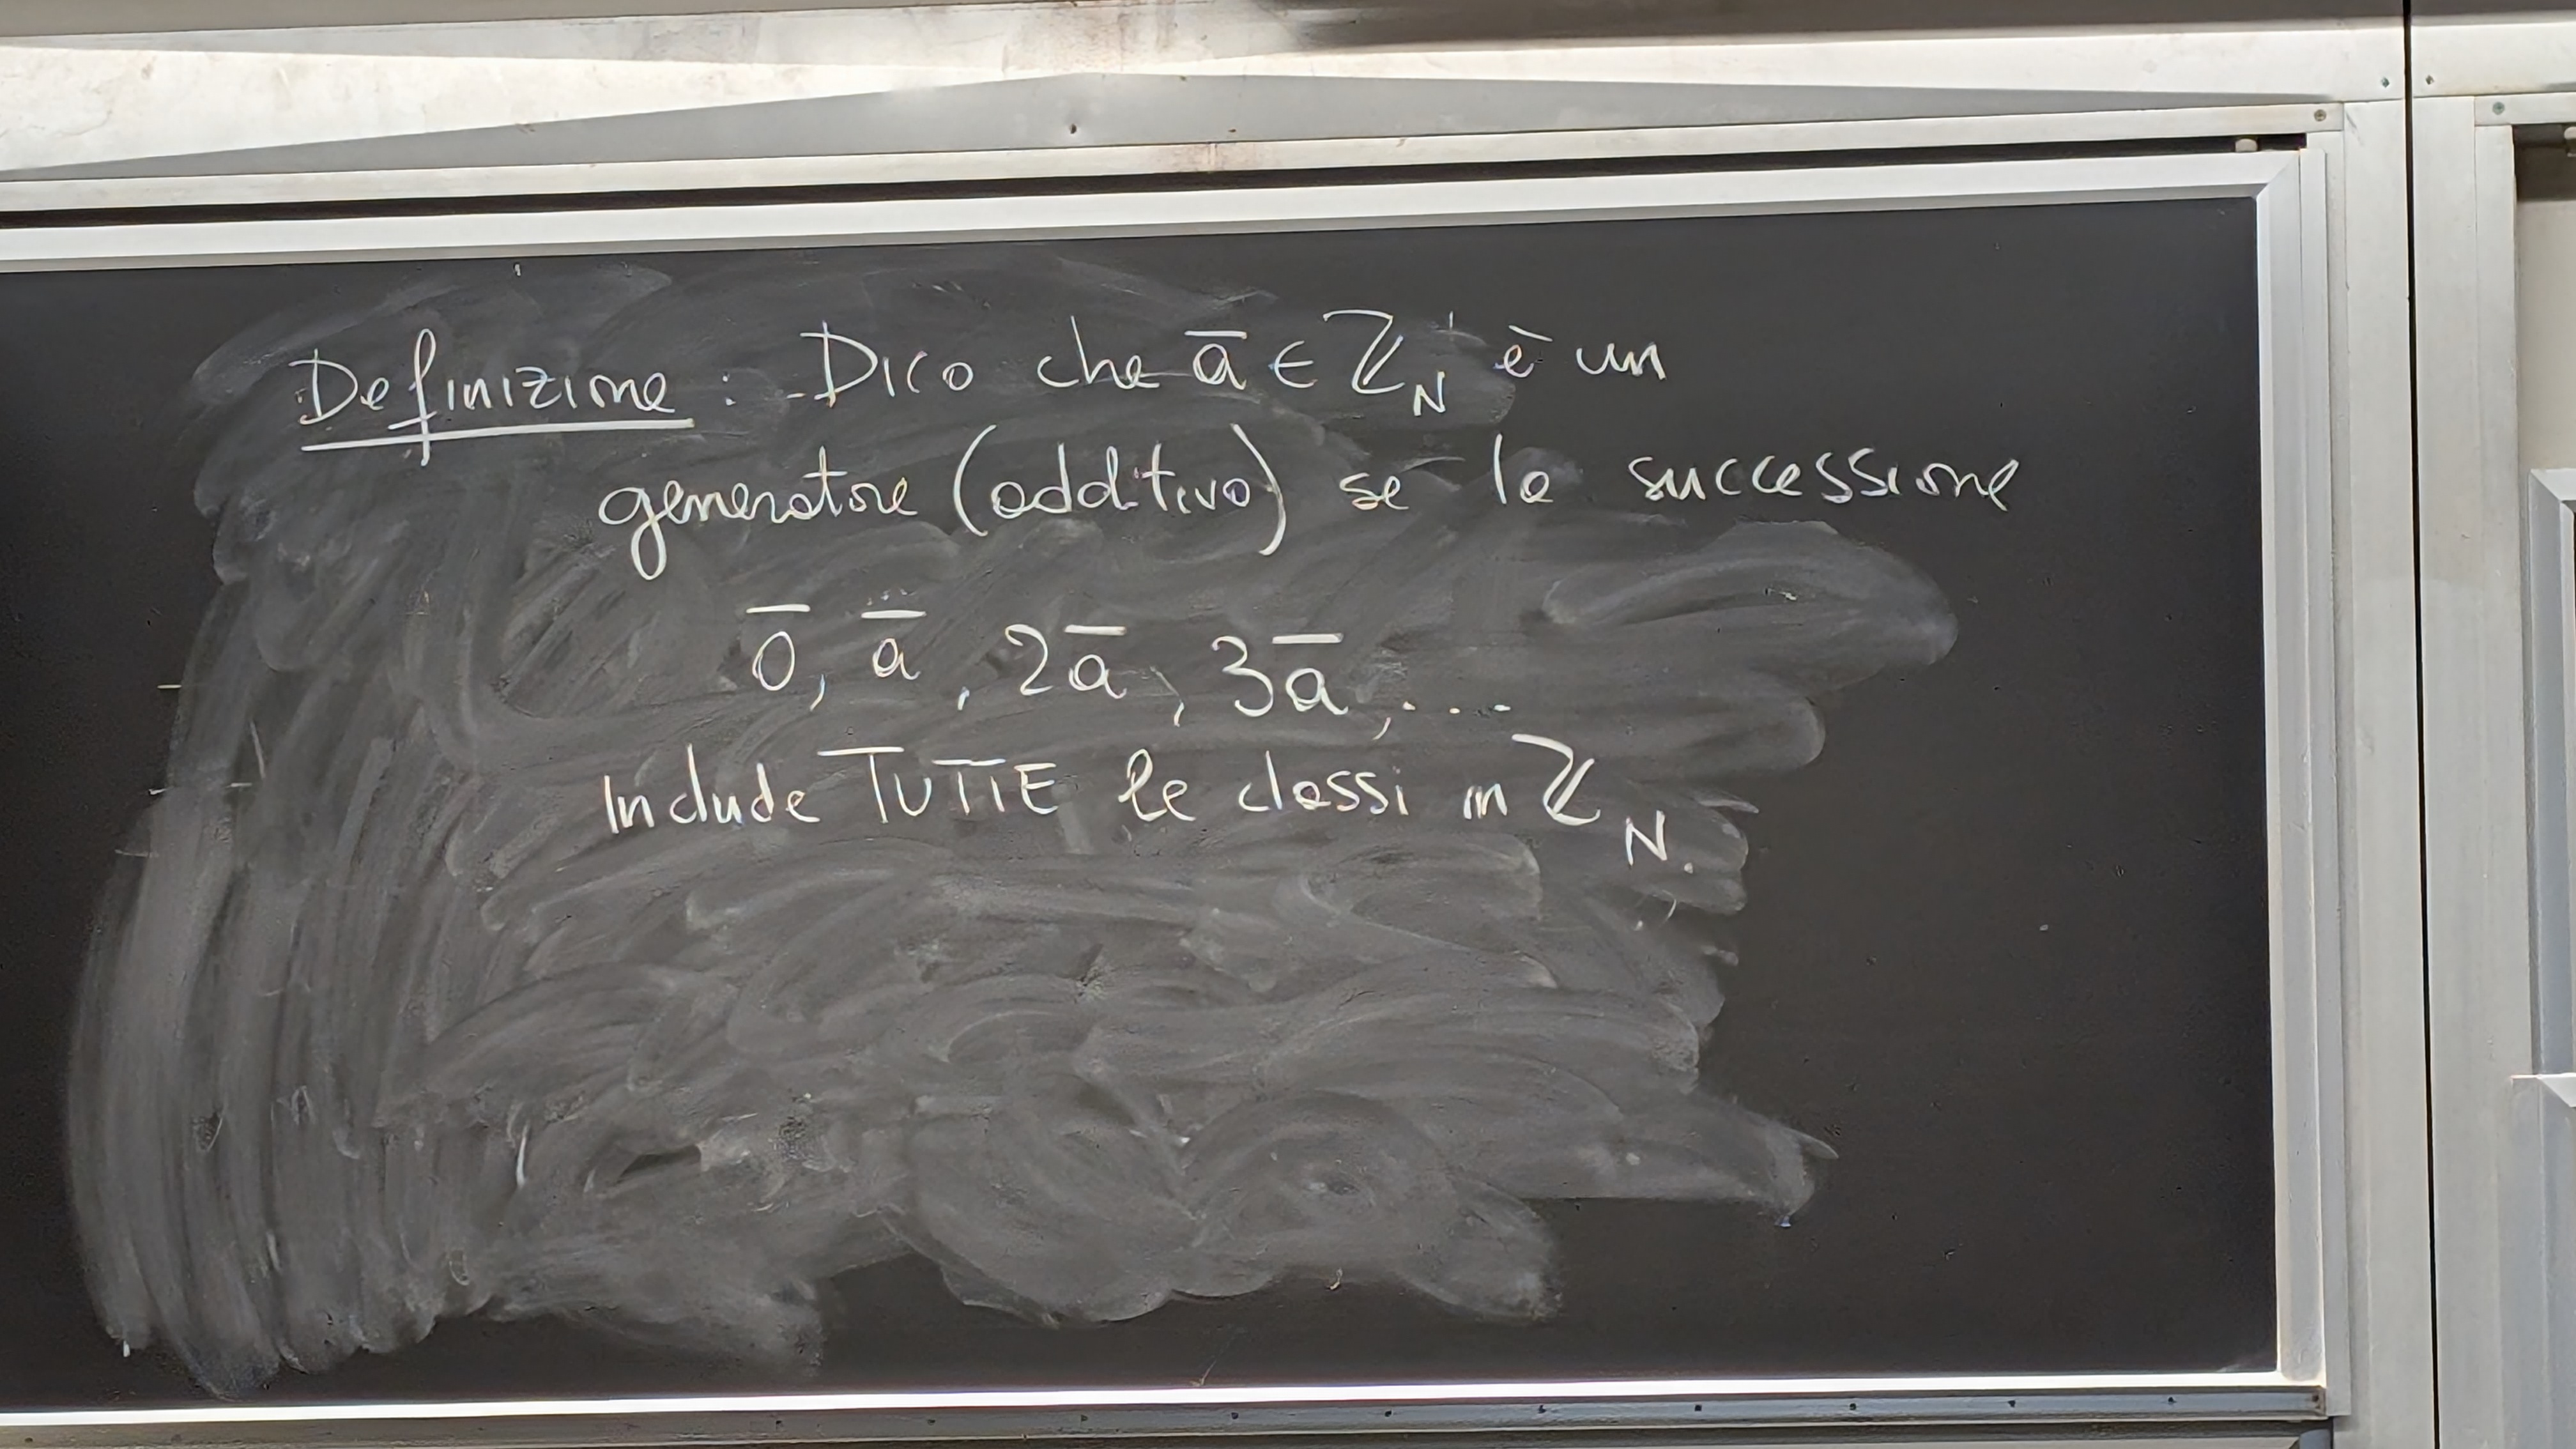 Definizione : Dico che a̅ ∈ ℤ_N è un
generatore (additivo) se la successione
0̅, a̅, 2a̅, 3a̅, ....
Include TUTTE le classi in ℤ_N.